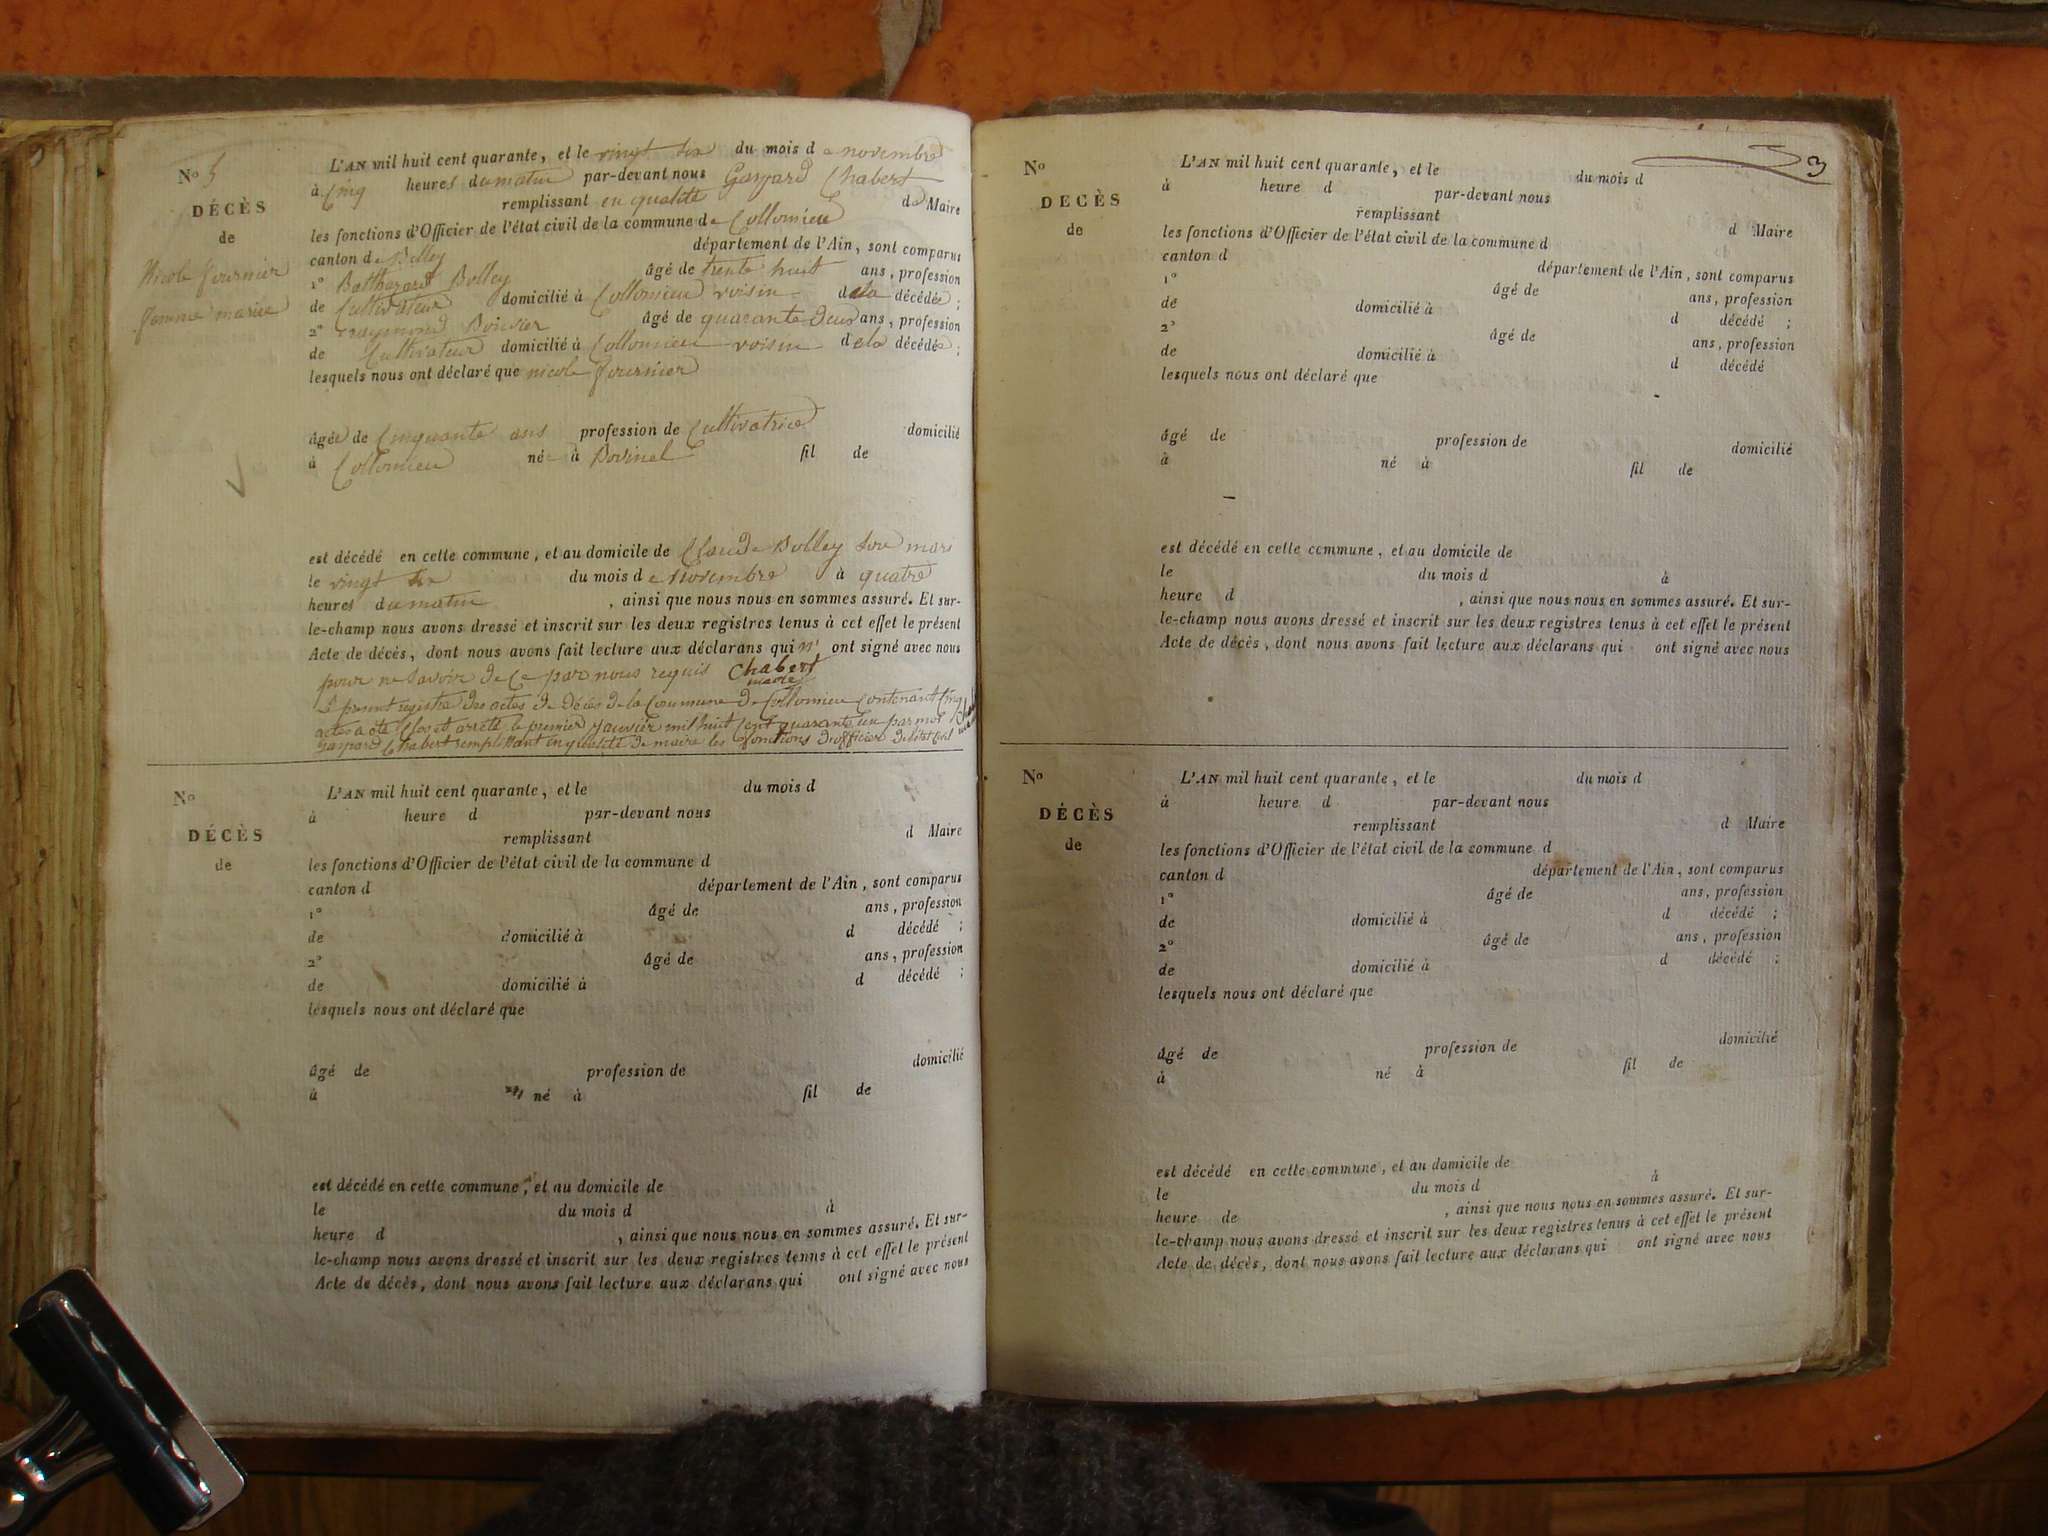 No 5
DÉCÈS
de
Nicole fournier
femme mariée
L'AN mil huit cent quarante, et le vingt six du mois de novembre
à Cinq heures du matin par-devant nous Gaspard Chabert
remplissant en qualité de Maire
les fonctions d'Officier de l'état civil de la commune de Collomieu
canton de Belley département de l'Ain, sont comparus
1° Balthazard Bolley âgé de trente huit ans, profession
de Cultivateur domicilié à Collomieu voisin de la décédée ;
2° raymond Bouvier âgé de quarante deux ans, profession
de Cultivateur domicilié à Collomieu voisin de la décédée ;
lesquels nous ont déclaré que nicole fournier
âgée de Cinquante ans profession de Cultivatrice domicilié
à Collomieu née à fil de
est décédé en cette commune, et au domicile de Claude Bolley son mari
le vingt six du mois de novembre à quatre
heures du matin , ainsi que nous nous en sommes assuré. Et sur-
le-champ nous avons dressé et inscrit sur les deux registres tenus à cet effet le présent
Acte de décès, dont nous avons fait lecture aux déclarans qui n' ont signé avec nous
pour ne savoir de Ce par nous requis Chabert
maire
Le present registre des actes de Décés de la Commune de Collomieu Contenant Cinq
actes a été Clos et arrêté le premier janvier mil huit Cent quarante un par moi
Gaspard Chabert remplissant en qualité de maire les fonctions d'officier de l'état Civil
No
DÉCÈS
de
L'AN mil huit cent quarante, et le du mois d
à heure d par-devant nous
remplissant d Maire
les fonctions d'Officier de l'état civil de la commune d
canton d département de l'Ain, sont comparus
1° âgé de ans, profession
de domicilié à d décédé ;
2° âgé de ans, profession
de domicilié à d décédé ;
lesquels nous ont déclaré que
âgé de profession de domicilié
à né à fil de
est décédé en cette commune, et au domicile de
le du mois d à
heure d , ainsi que nous nous en sommes assuré. Et sur-
le-champ nous avons dressé et inscrit sur les deux registres tenus à cet effet le présent
Acte de décès, dont nous avons fait lecture aux déclarans qui ont signé avec nous
3
No
DECÈS
de
L'AN mil huit cent quarante, et le du mois d
à heure d par-devant nous
remplissant d Maire
les fonctions d'Officier de l'état civil de la commune d
canton d département de l'Ain, sont comparus
1° âgé de ans, profession
de domicilié à d décédé ;
2° âgé de ans, profession
de domicilié à d décédé
lesquels nous ont déclaré que
âgé de profession de domicilié
à né à fil de
est décédé en cette commune, et au domicile de
le du mois d à
heure d , ainsi que nous nous en sommes assuré. Et sur-
le-champ nous avons dressé et inscrit sur les deux registres tenus à cet effet le présent
Acte de décès, dont nous avons fait lecture aux déclarans qui ont signé avec nous
No
DÉCÈS
de
L'AN mil huit cent quarante, et le du mois d
à heure d par-devant nous
remplissant d Maire
les fonctions d'Officier de l'état civil de la commune d
canton d département de l'Ain, sont comparus
1° âgé de ans, profession
de domicilié à d décédé ;
2° âgé de ans, profession
de domicilié à d décédé ;
lesquels nous ont déclaré que
âgé de profession de domicilié
à né à fil de
est décédé en cette commune, et au domicile de
le du mois d à
heure de , ainsi que nous nous en sommes assuré. Et sur-
le-champ nous avons dressé et inscrit sur les deux registres tenus à cet effet le présent
Acte de décès, dont nous avons fait lecture aux déclarans qui ont signé avec nous